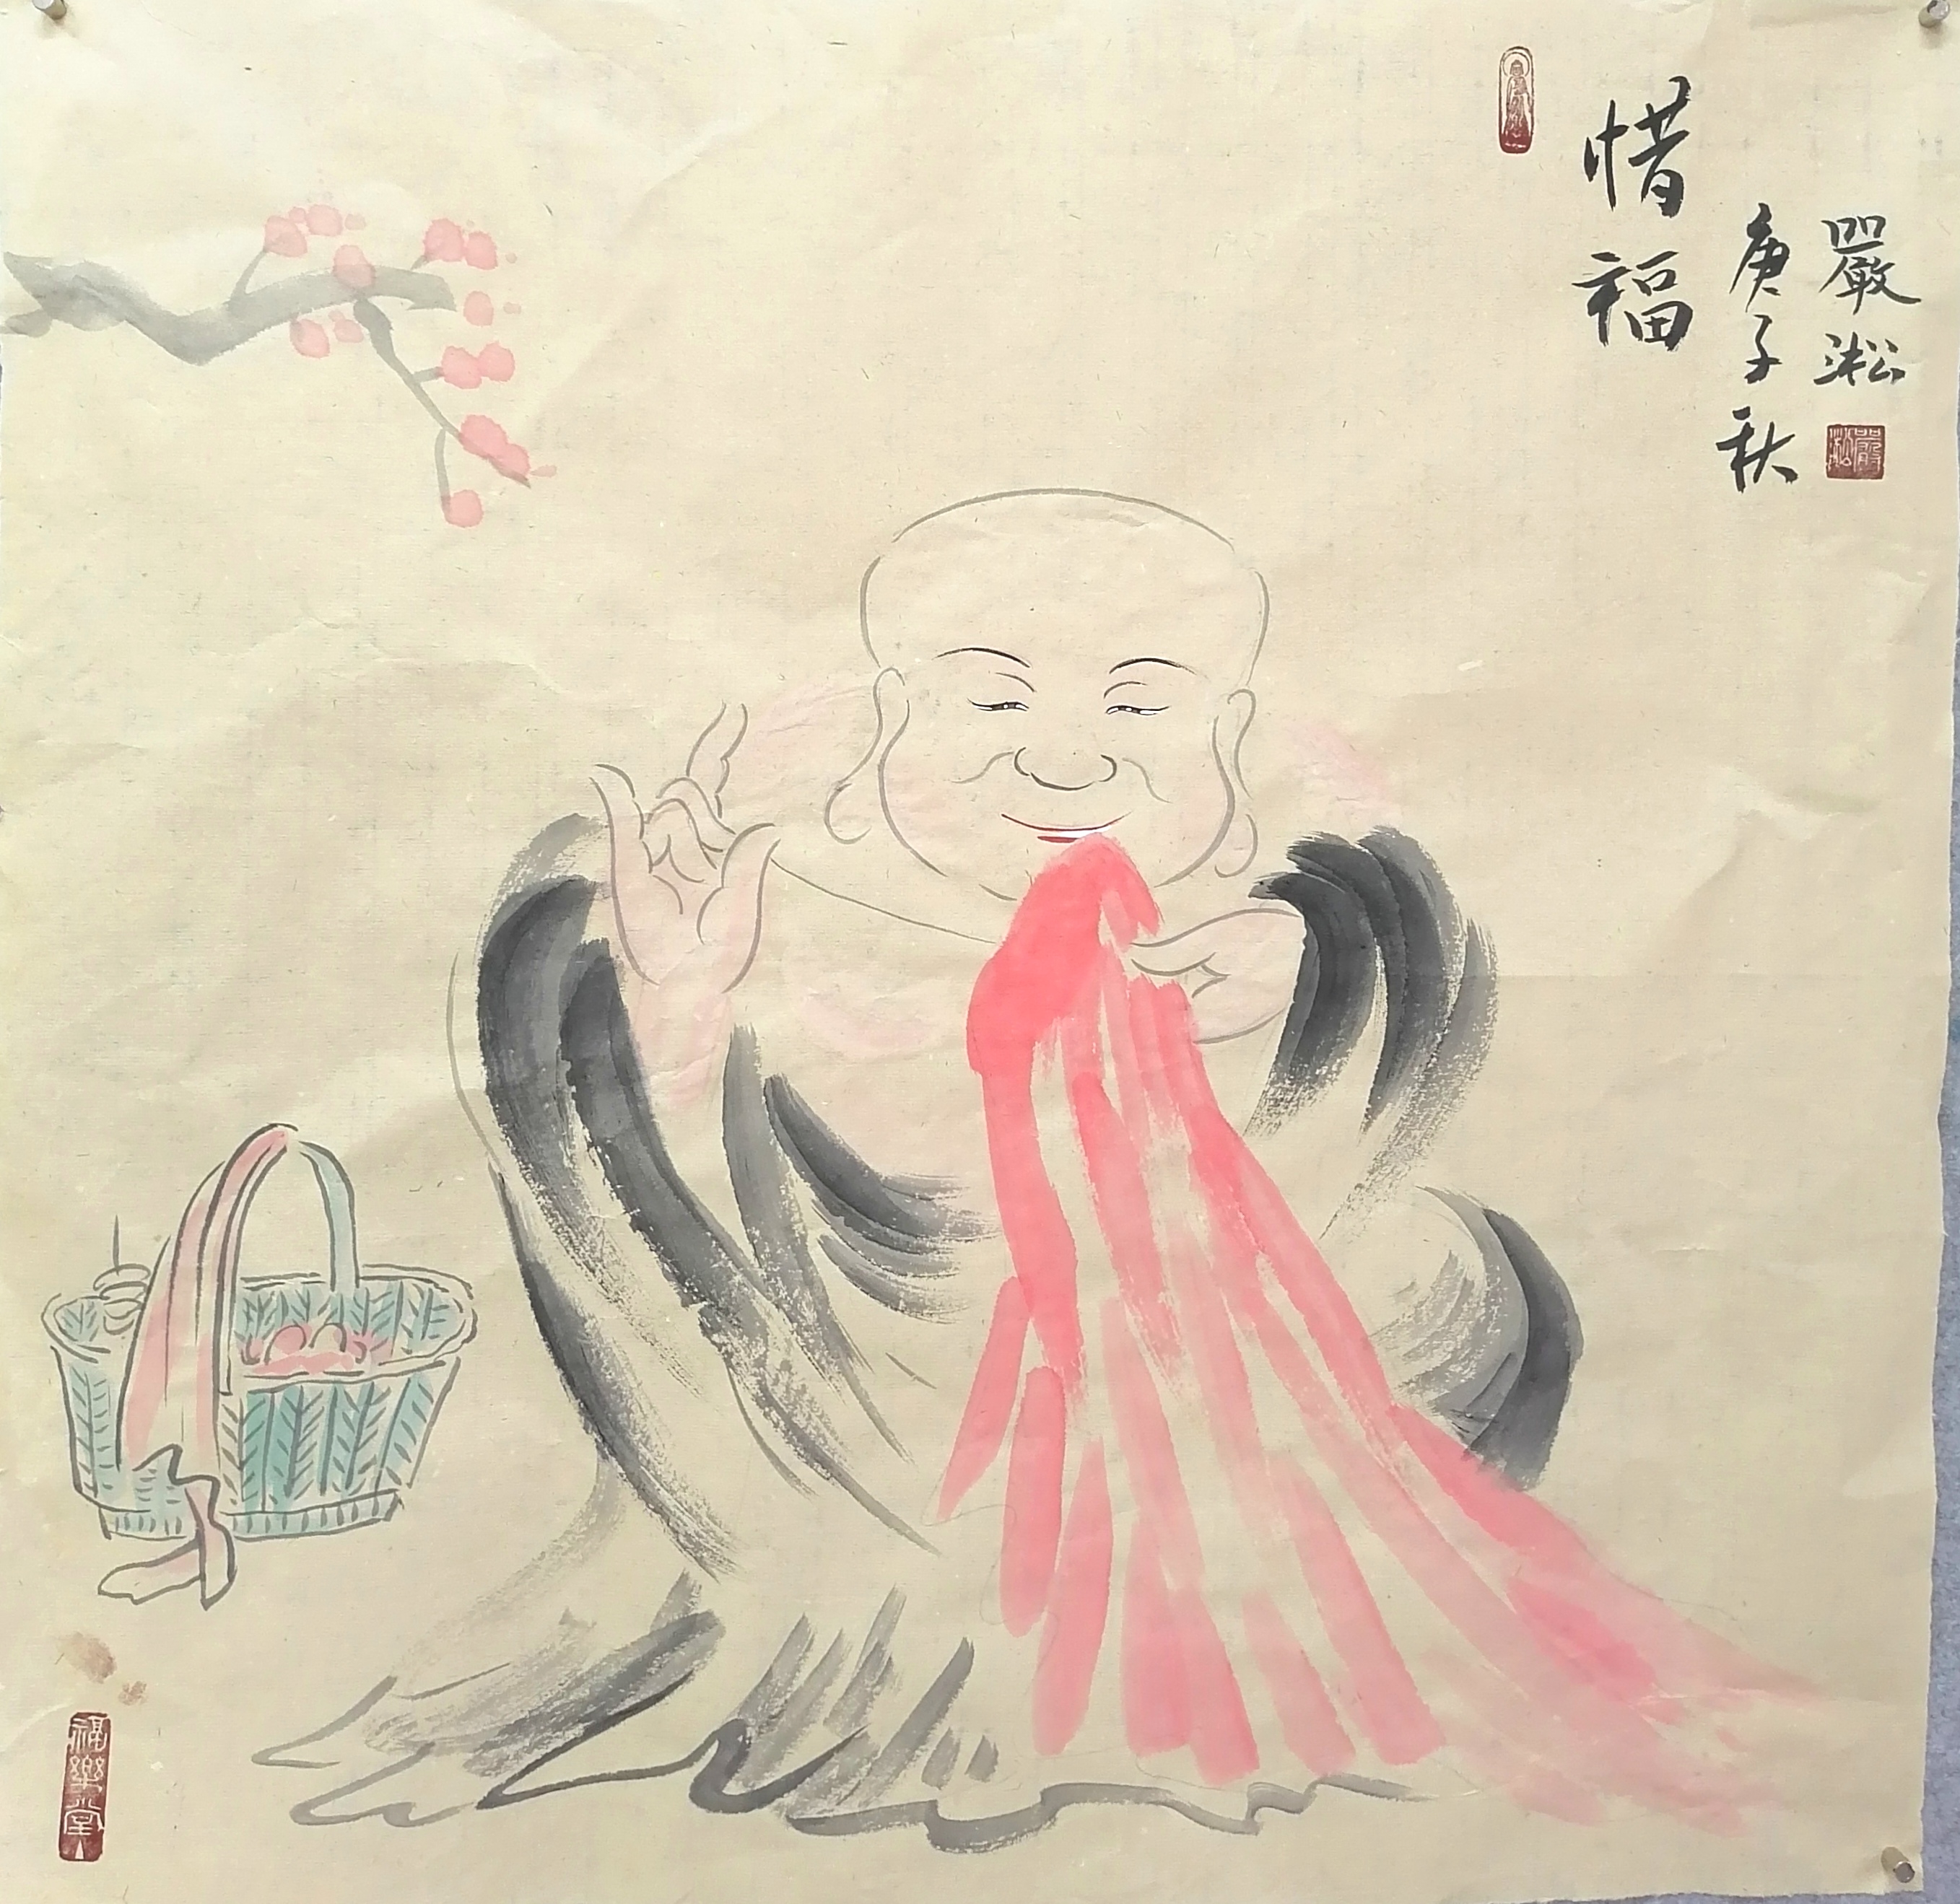 惜福
庚子秋
嚴淞
嚴淞
福樂堂